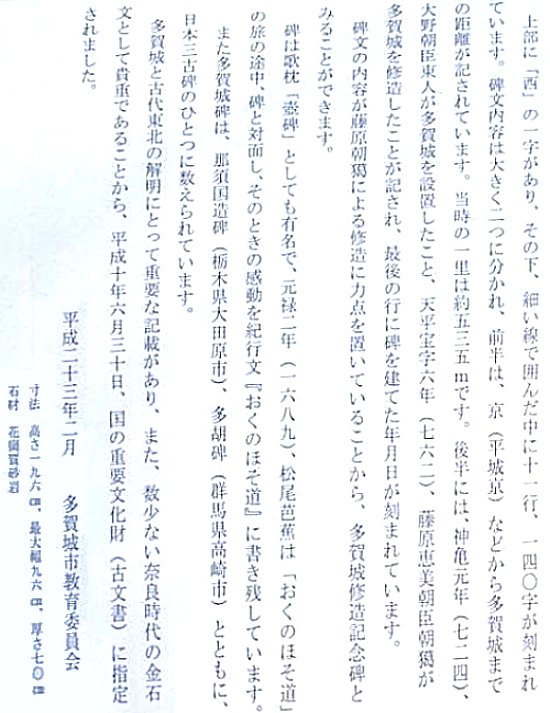 上部に「西」の一字があり、その下、細い線で囲んだ中に十一行、一四〇字が刻まれ
ています。碑文内容は大きく二つに分かれ、前半は、京（平城京）などから多賀城まで
の距離が記されています。当時の一里は約五三五ｍです。後半には、神亀元年（七二四）、
大野朝臣東人が多賀城を設置したこと、天平宝字六年（七六二）、藤原恵美朝臣朝獦が
多賀城を修造したことが記され、最後の行に碑を建てた年月日が刻まれています。
碑文の内容が藤原朝獦による修造に力点を置いていることから、多賀城修造記念碑と
みることができます。
碑は歌枕「壺碑」としても有名で、元禄二年（一六八九）、松尾芭蕉は「おくのほそ道」
の旅の途中、碑と対面し、そのときの感動を紀行文『おくのほそ道』に書き残しています。
また多賀城碑は、那須国造碑（栃木県大田原市）、多胡碑（群馬県高崎市）とともに、
日本三古碑のひとつに数えられています。
多賀城と古代東北の解明にとって重要な記載があり、また、数少ない奈良時代の金石
文として貴重であることから、平成十年六月三十日、国の重要文化財（古文書）に指定
されました。
平成二十三年二月　多賀城市教育委員会
寸法　高さ一九六㎝、最大幅九六㎝、厚さ七〇㎝
石材　花崗質砂岩